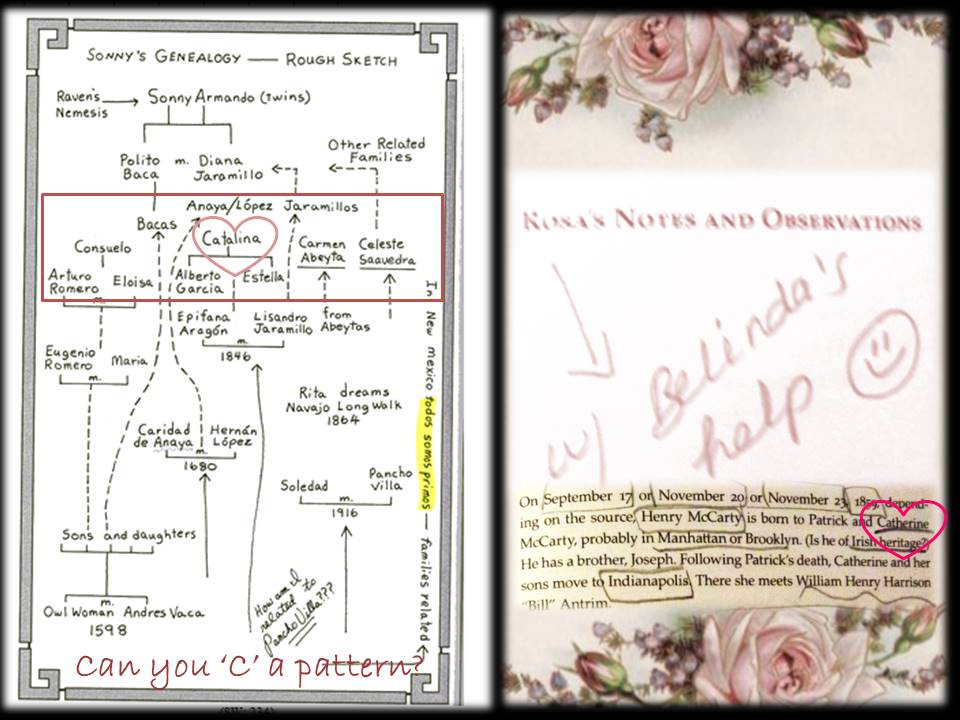 SONNY'S GENEALOGY — ROUGH SKETCH
Raven's
Nemesis
Sonny Armando (twins)
Polito m. Diana
Baca Jaramillo
Other Related
Families
Anaya/López Jaramillos
Bacas
Catalina
Consuelo
Carmen
Abeyta
Celeste
Saavedra
Arturo
Romero
Eloisa
m.
Alberto
García
Estella
Epifana
Aragón
Lisandro
Jaramillo
m.
1846
from
Abeytas
Eugenio
Romero
Maria
m.
Rita dreams
Navajo Long Walk
1864
Caridad
de Anaya
Hernán
López
m.
1680
Soledad
Pancho
Villa
m.
1916
Sons and daughters
m.
Owl Woman Andres Vaca
1598
How am I
related to
Pancho Villa???
In New mexico todos somos primos — families related
Can you 'C' a pattern?
ROSA'S NOTES AND OBSERVATIONS
w/ Belinda's
help
On September 17 or November 20 or November 23, 1859, depend-
ing on the source, Henry McCarty is born to Patrick and Catherine
McCarty, probably in Manhattan or Brooklyn. (Is he of Irish heritage?)
He has a brother, Joseph. Following Patrick's death, Catherine and her
sons move to Indianapolis. There she meets William Henry Harrison
"Bill" Antrim.